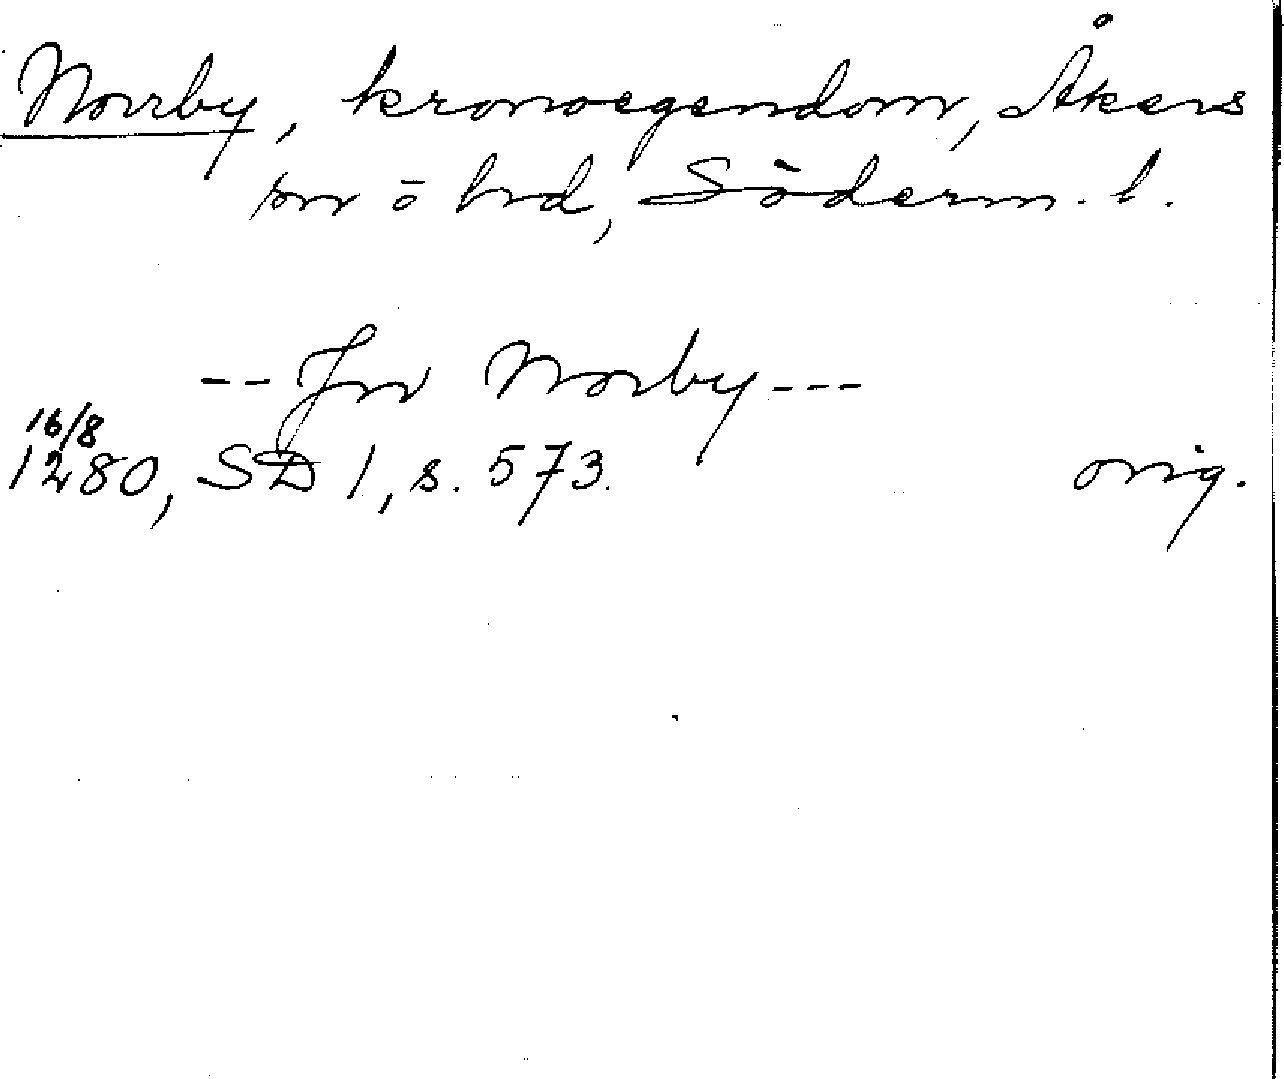 Norrby, kronoegendom, Åkers
sn o hd, Söderm. l.
-- Jn Norby ---
16/8
1280, SD 1, s. 573. orig.